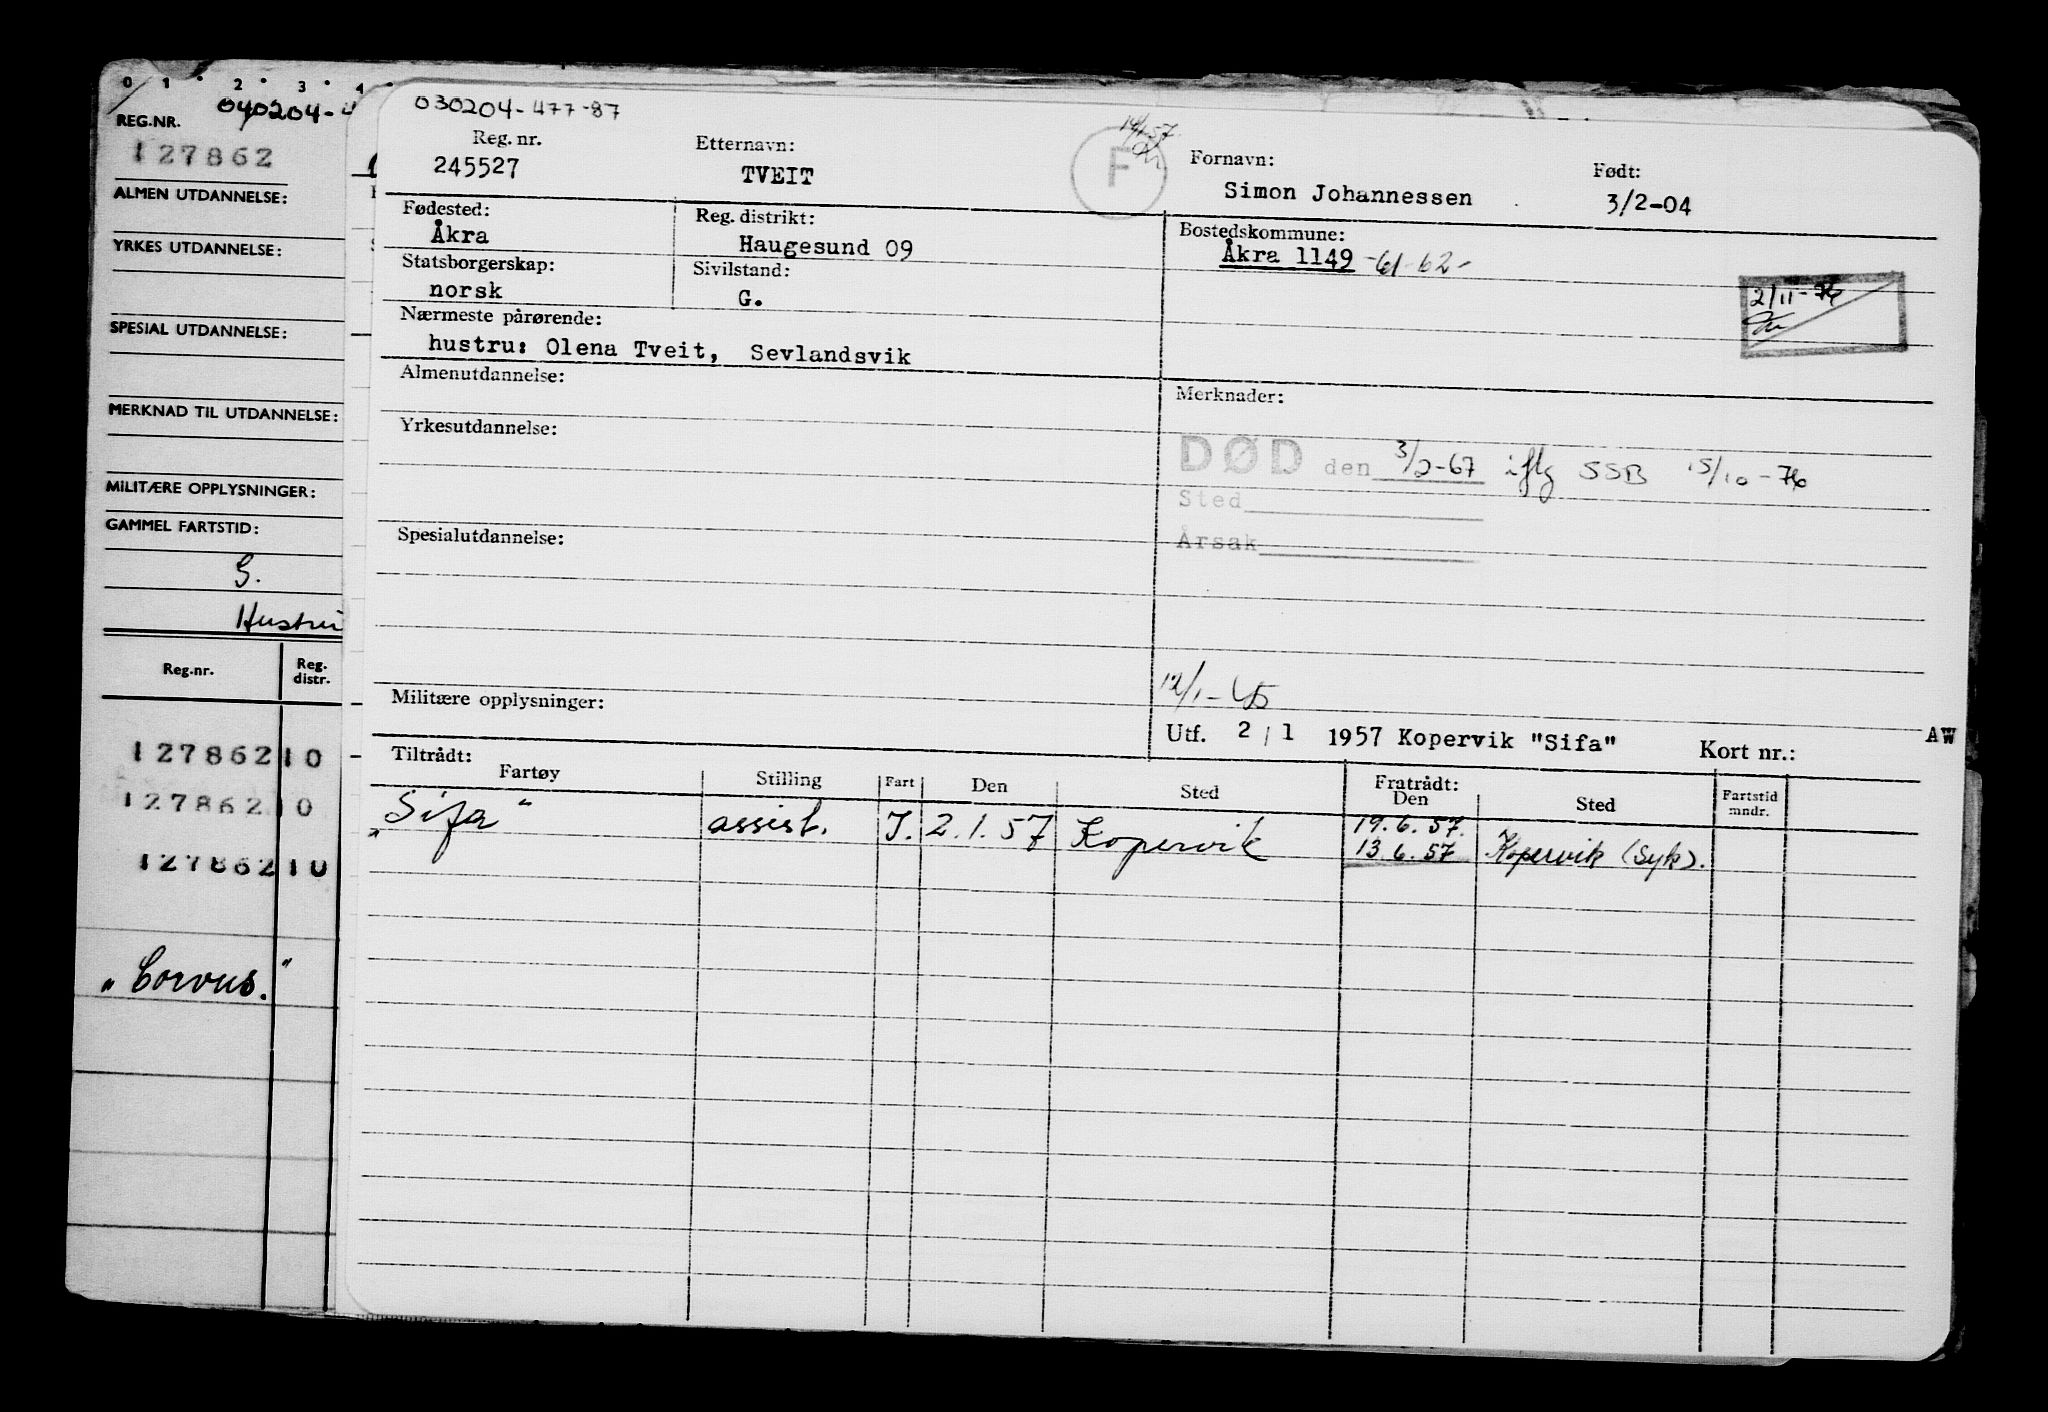 0 1 2 3 4
040204-4
REG.NR.
127862
ALMEN UTDANNELSE:
YRKES UTDANNELSE:
SPESIAL UTDANNELSE:
MERKNAD TIL UTDANNELSE:
MILITÆRE OPPLYSNINGER:
GAMMEL FARTSTID:
G.
Hustru
Reg.nr. Reg. distr.
127862 10
127862 10
127862 10
"Corvus."
030204-477-87
Reg. nr. Etternavn: Fornavn: Født:
245527 TVEIT F 14/1-57 Simon Johannessen 3/2-04
Fødested: Reg. distrikt: Bostedskommune:
Åkra Haugesund 09 Åkra 1149 -61-62-
Statsborgerskap: Sivilstand:
norsk G.
2/11-76
Nærmeste pårørende:
hustru: Olena Tveit, Sevlandsvik
Almenutdannelse: Merknader:
Yrkesutdannelse:
DØD den 3/2-67 iflg SSB 15/10-76
Sted
Årsak
Spesialutdannelse:
12/1-45
Militære opplysninger:
Utf. 2/1 1957 Kopervik "Sifa" Kort nr.: AW
Tiltrådt: Fratrådt:
Fartøy Stilling Fart Den Sted Den Sted Fartstid mndr.
"Sifa" assist. J. 2.1.57 Kopervik 19.6.57.
13.6.57 Kopervik (Syk).